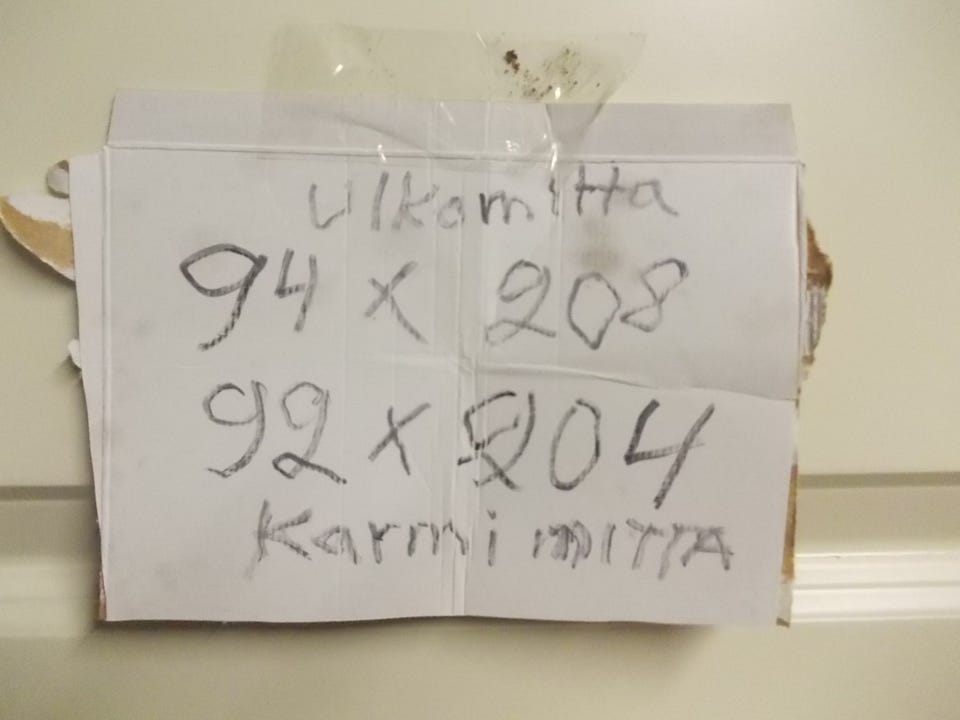 Ulkomitta
94 x 208
92 x 204
Karmi mITTA